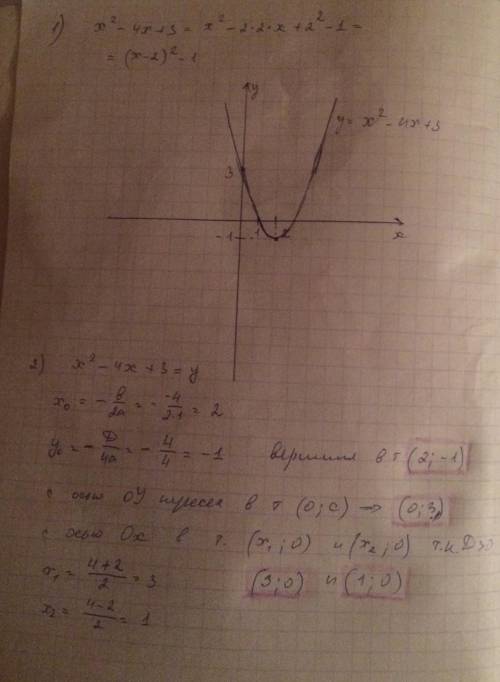 1) x² - 4x + 3 = x² - 2·2·x + 2² - 1 =
= (x-2)² - 1
y
y = x² - 4x + 3
3
1 2
-1
x
2) x² - 4x + 3 = y
x₀ = -в/2a = - -4/2·1 = 2
y₀ = -D/4a = -4/4 = -1 вершина в т (2; -1)
с осью OY в т (0; c) → (0; 3)
с осью Ox в т. (x₁; 0) и (x₂; 0) т.к D>0
x₁ = 4+2/2 = 3 (3; 0) и (1; 0)
x₂ = 4-2/2 = 1